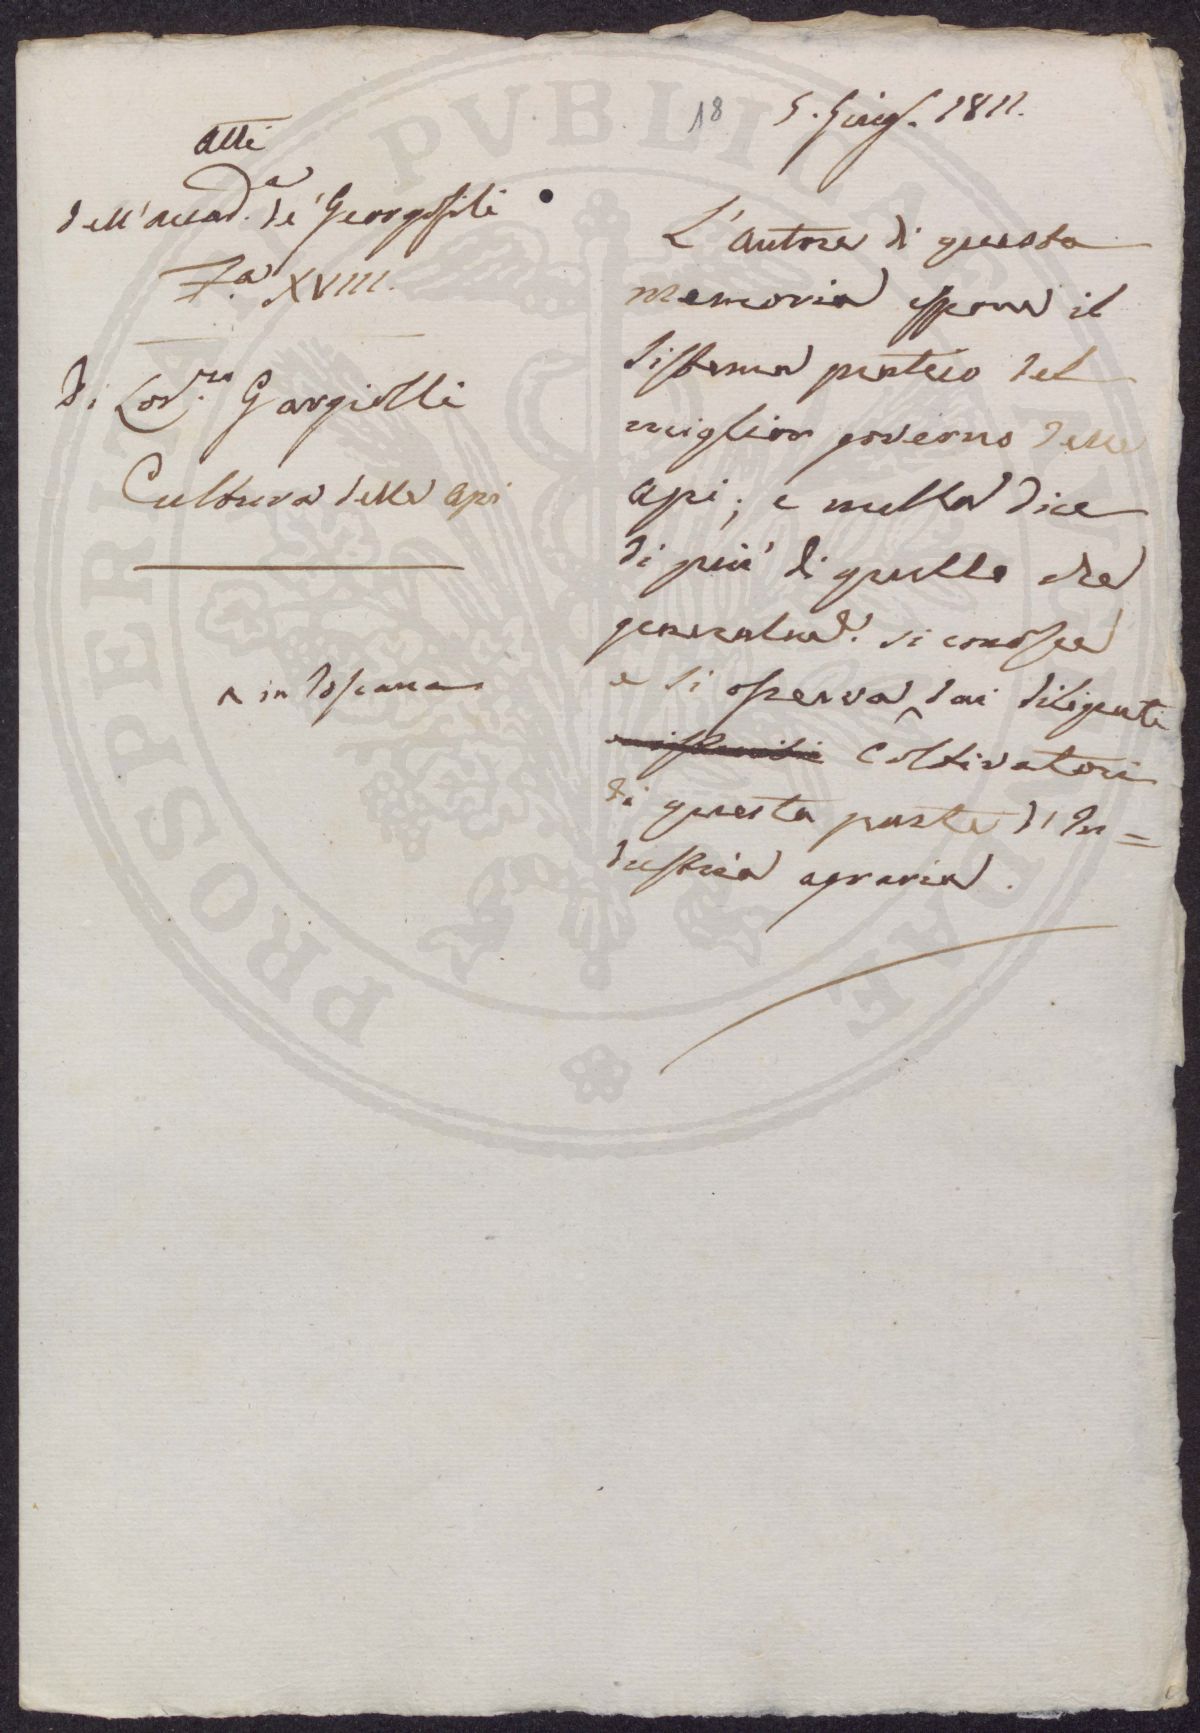 18
5. Giug. 1811.
Atti
dell'Accad.a de' Georgofili
XVIII.
Di Lod.co Gargiolli
Cultura delle Api
^ in Toscana
L'autore di questa
memoria espone il
sistema pratico del
miglior governo delle
api; e nulla dice
di più di quello che
generalme. si conosce
e si osserva ^ dai diligenti
Coltivatori
di questa parte d'In=
dustria agraria.
PVBLICA
PROSPERITA